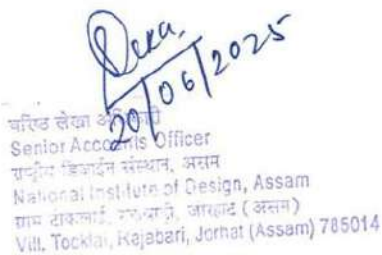 20/06/2025
वरिष्ठ लेखा अधिकारी
Senior Accounts Officer
राष्ट्रीय डिजाईन संस्थान, असम
National Institute of Design, Assam
ग्राम टोकलाई, राजाबाड़ी, जोरहाट (असम)
Vill. Tocklai, Rajabari, Jorhat (Assam) 785014